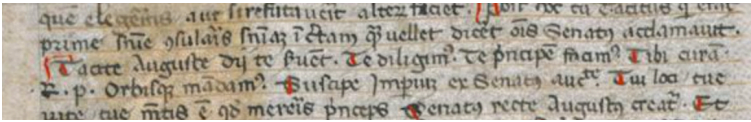 quē elegerīs aut si refutaverit alter faciet. Post hoc cū Tacitus q̄ erat
prime snīe ɔsularis snīaꝫ ī ctam q̄ꝫ vellet dicet oīs Senatꝰ acclamavit.
Tacite Auguste dij te suēt. Te diligimꝰ. Te pn̄cipē facimꝰ. Tibi curā
R. p. Orbisq̨ mādamꝰ. Suscipe Imperiū ex Senatꝰ aucte. Tui loci tue
vite tue mētis ē qd̓ mereris pn̄ceps Senatꝰ recte Augustꝰ creat᷑. Et